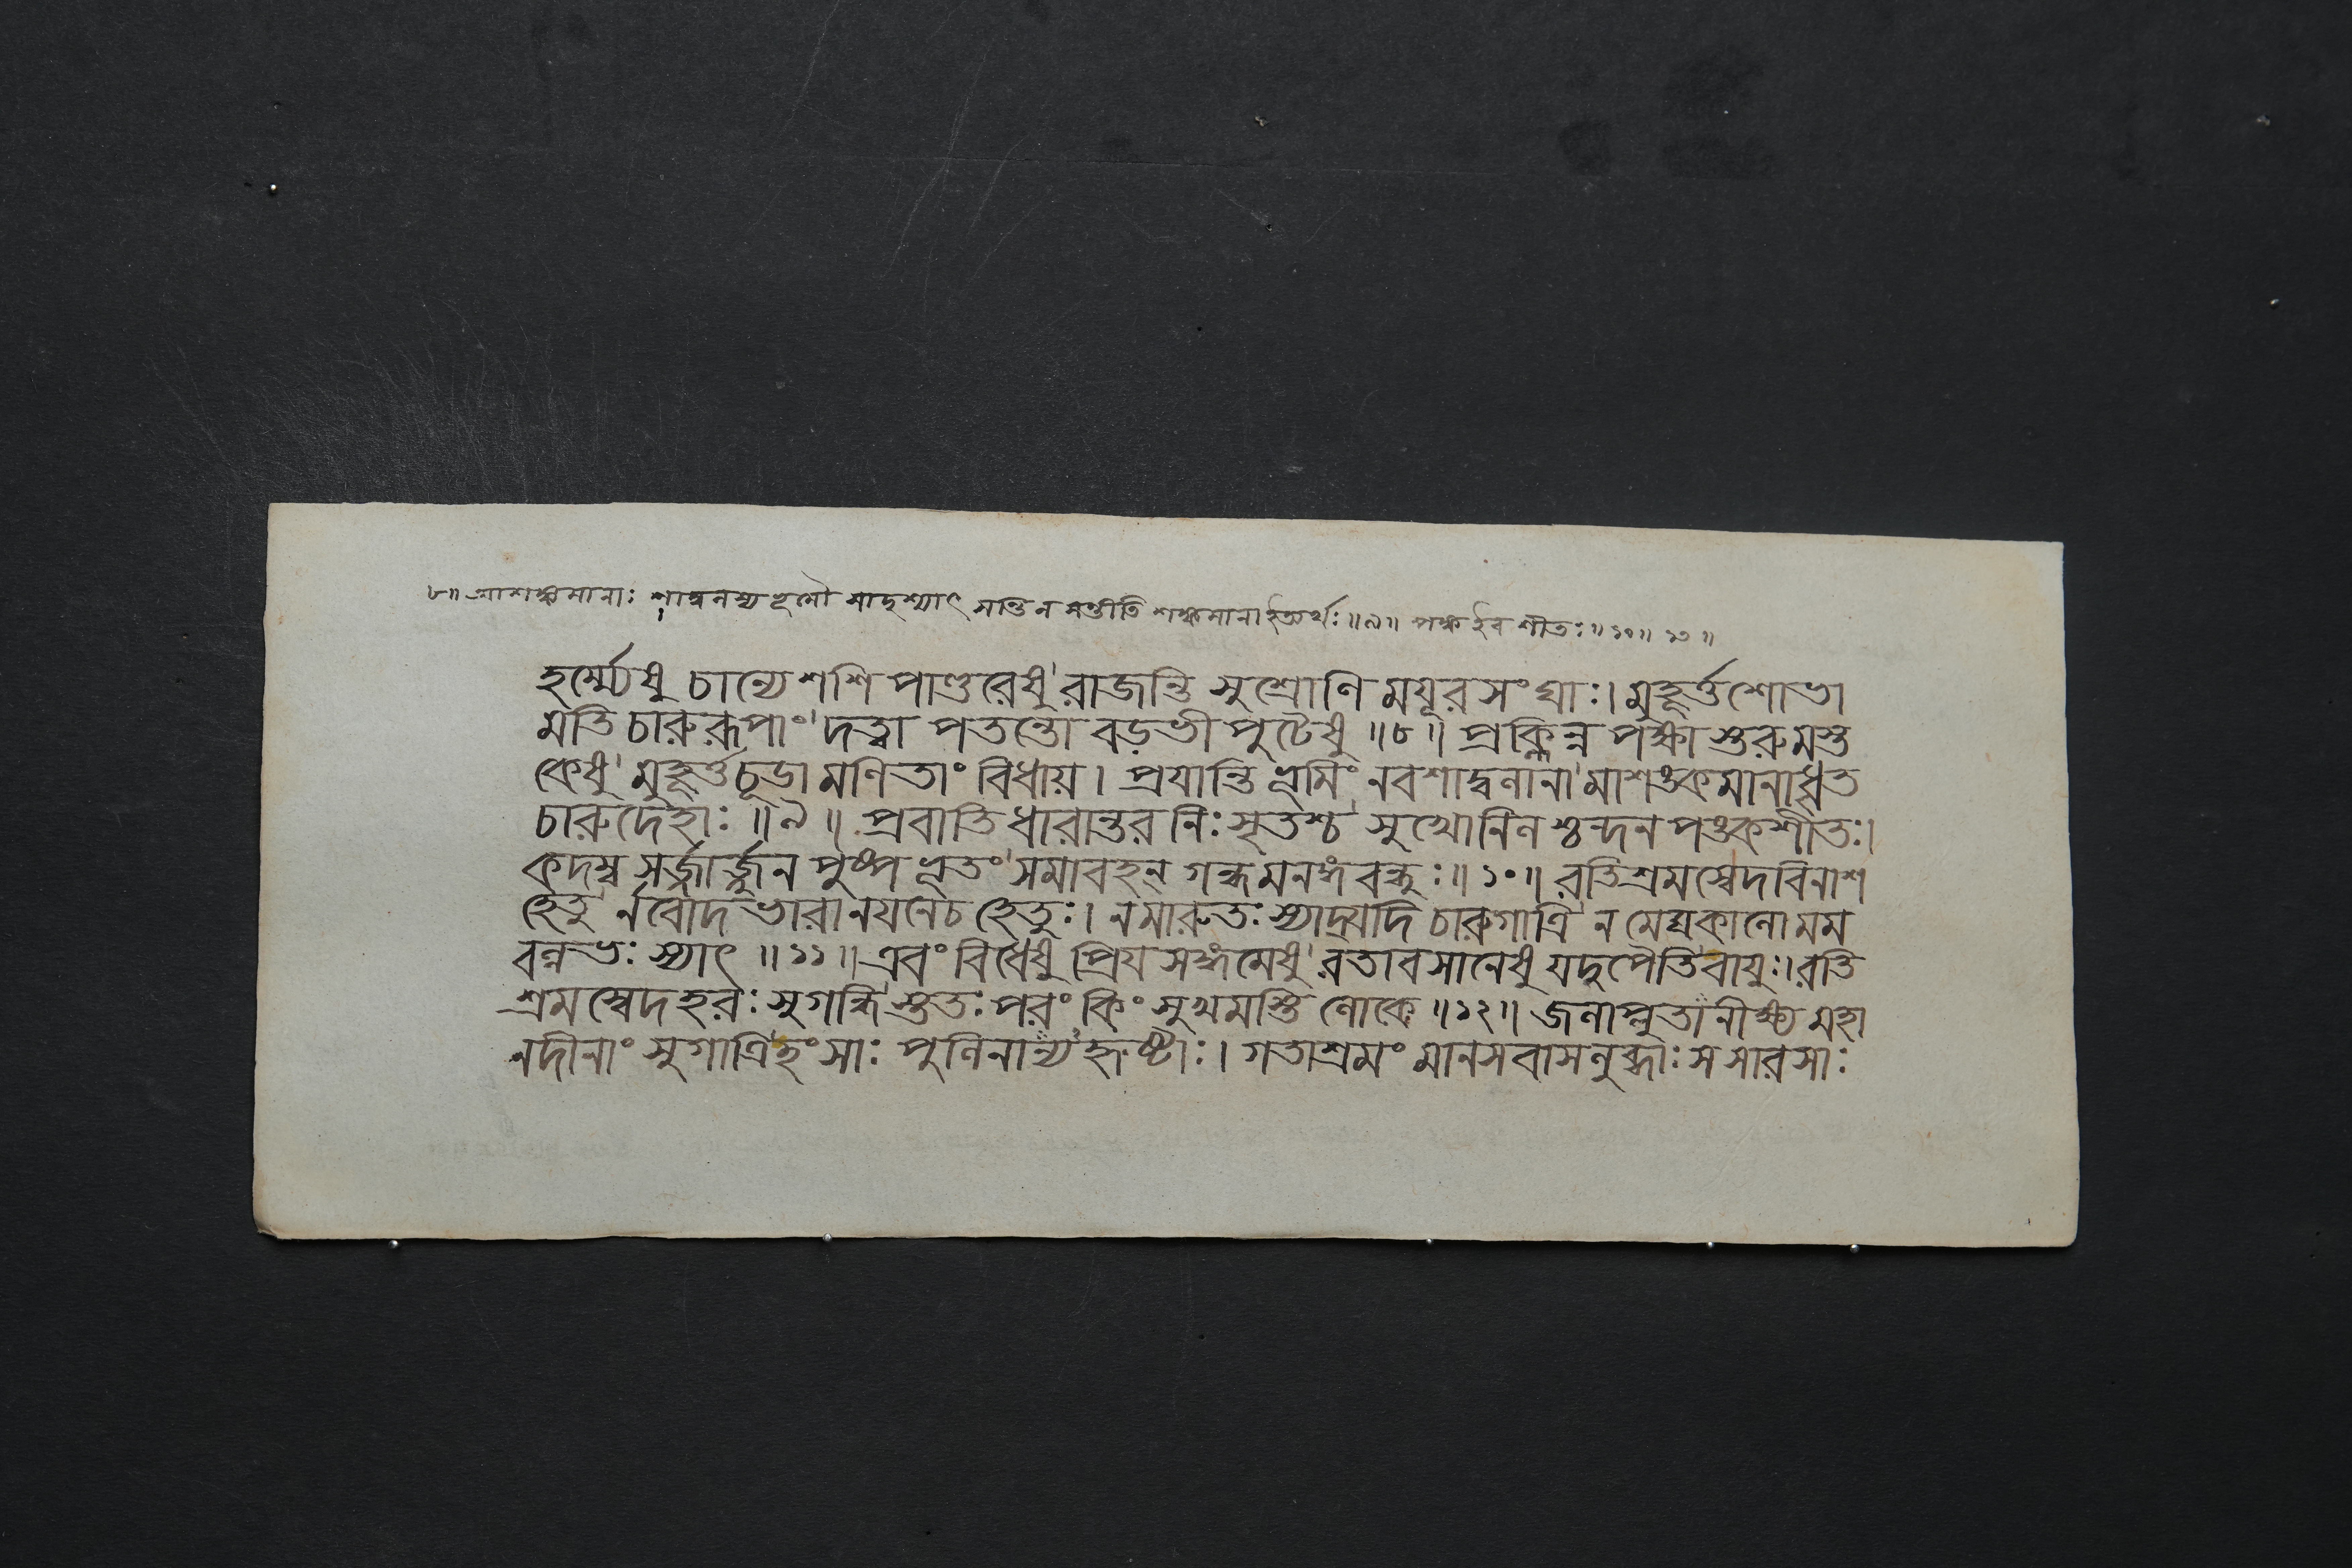 ৮॥ আশঙ্কমানাঃ শাদ্বলস্য হূলৌ সাদৃশ্যাৎ মস্তি ন মস্তীতি শঙ্কমানা ইত্যর্থঃ ॥৯॥ পঙ্ক ইব শীতঃ ॥১০॥ ১১ ॥
হর্ম্ম্যেষু চান্যে শশি পাণ্ডরেষু রাজন্তি সুশ্রোণি ময়ূর সংঘাঃ। মুহূর্ত্তশোভা
মতি চারুরূপাং দত্ত্বা পতন্তো বড়ভী পুটেষু ॥৮॥ প্রক্লিন্ন পক্ষা স্তরু মস্ত
কেষু মুহূর্ত্ত চূডামণিতাং বিধায়। প্রযান্তি ভূমিং নবশাদ্বলানা মাশঙ্কমানা ধৃত
চারুদেহাঃ ॥৯॥ প্রবাতি ধারান্তর নিঃসৃতশ্চ সুখোনিল শ্চন্দন পঙ্কশীতঃ।
কদম্ব সর্জ্জার্জ্জুন পুষ্প ভূতং সমাবহন্ গন্ধমনঙ্গবন্ধুঃ ॥১০॥ রতিশ্রমস্বেদ বিনাশ
হেতু র্নবোদ ভারানযনেচ হেতুঃ। ন মারুতঃ স্যাদ্যদি চারুগাত্রি ন মেঘকালো মম
বল্লভঃ স্যাৎ ॥১১॥ এবং বিধেষু প্রিয সঙ্গমেষু রতাবসানেষু যদুপৈতি বায়ুঃ। রতি
শ্রমস্বেদহরঃ সুগন্ধি স্ততঃ পরং কিং সুখমস্তি লোকে ॥১২॥ জলাপ্লুতানীক্ষ্য মহা
নদীনাং সুগাত্রি হংসাঃ পুলিনান্য হৃষ্টাঃ। গতাশ্রমং মানসবাসলুব্ধাঃ সসারসাঃ